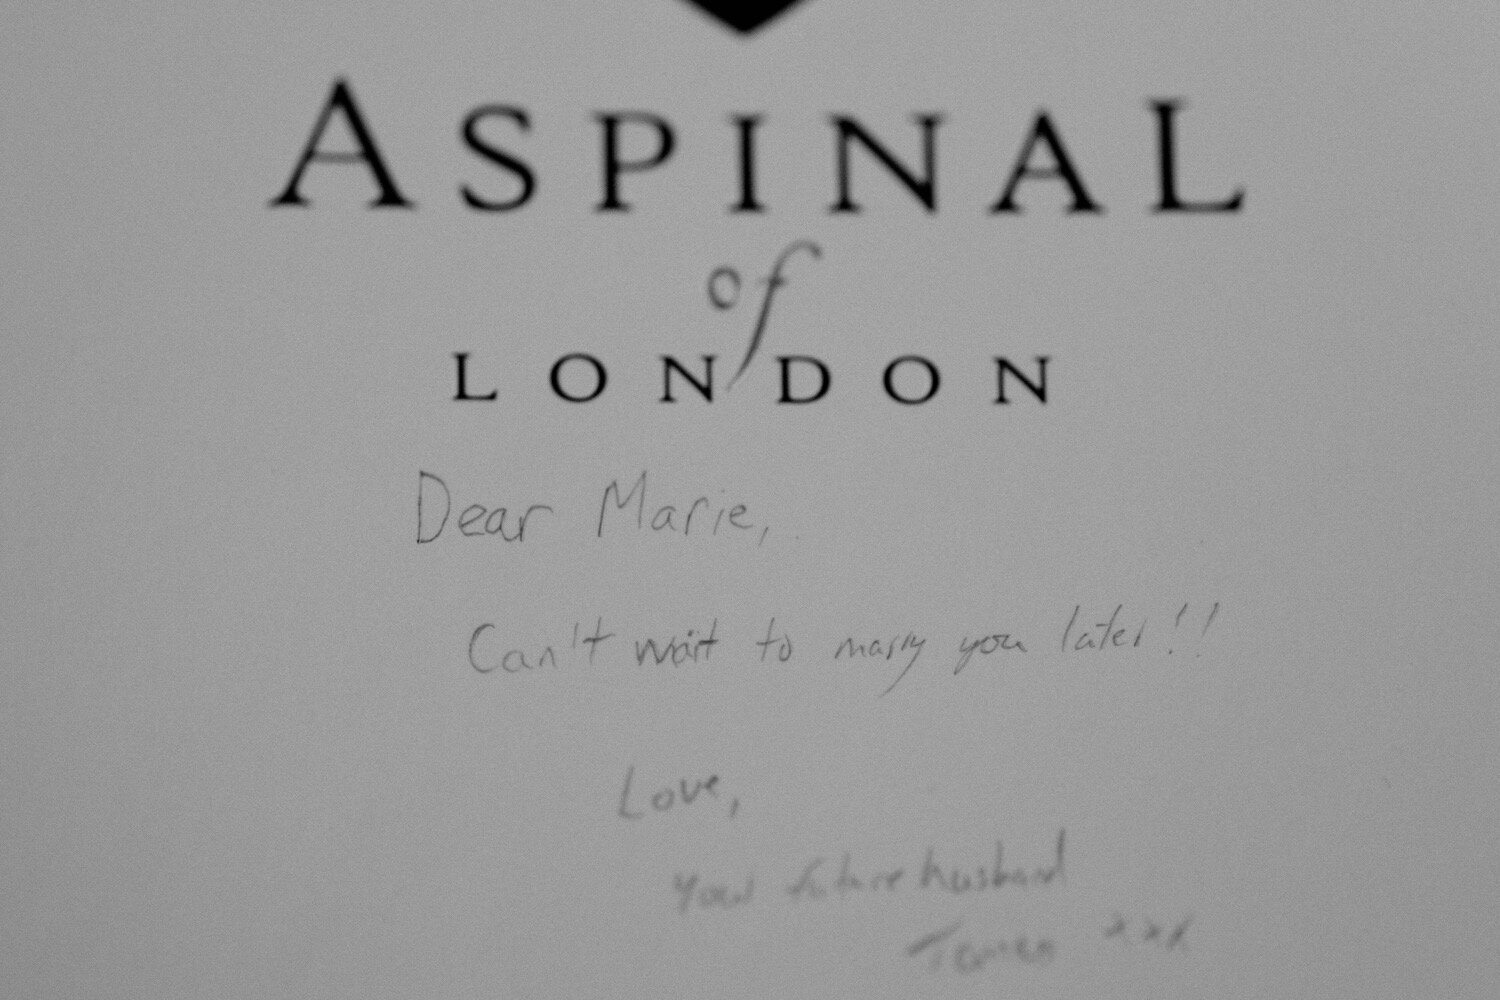 ASPINAL
of
LONDON
Dear Marie,
Can't wait to marry you later!!
Love,
Your future husband
xxx